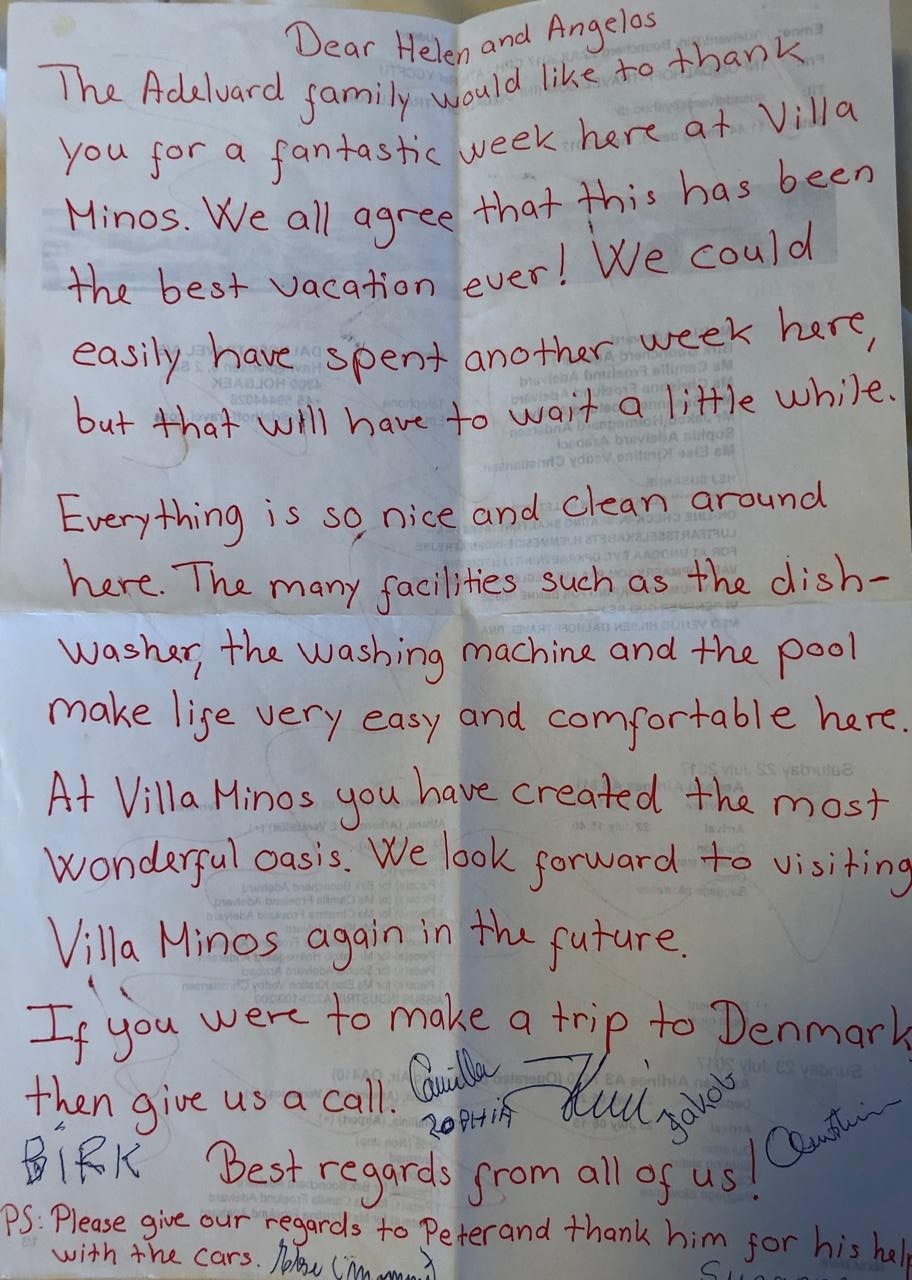 Dear Helen and Angelos
The Adelvard family would like to thank
you for a fantastic week here at Villa
Minos. We all agree that this has been
the best vacation ever! We could
easily have spent another week here,
but that will have to wait a little while.
Everything is so nice and clean around
here. The many facilities such as the dish-
washer, the washing machine and the pool
make life very easy and comfortable here.
At Villa Minos you have created the most
wonderful oasis. We look forward to visiting
Villa Minos again in the future.
If you were to make a trip to Denmark
then give us a call. Camilla
SOPHIA Jakob
BIRK Best regards from all of us!
PS: Please give our regards to Peter and thank him for his help
with the cars.